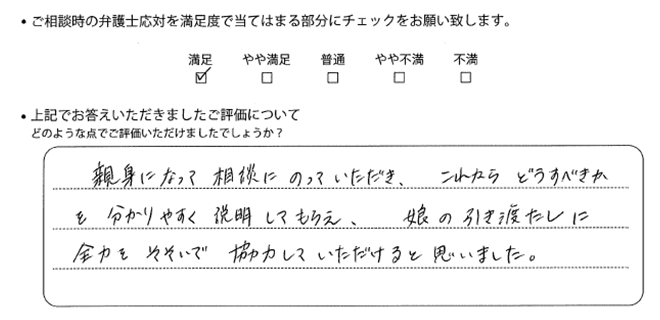 ・ご相談時の弁護士応対を満足度で当てはまる部分にチェックをお願い致します。
満足 やや満足 普通 やや不満 不満
☑ □ □ □ □
・上記でお答えいただきましたご評価について
どのような点でご評価いただけましたでしょうか？
親身になって相談にのっていただき、これからどうすべきか
を分かりやすく説明してもらえ、娘の引き渡たしに
全力をそそいで協力していただけると思いました。